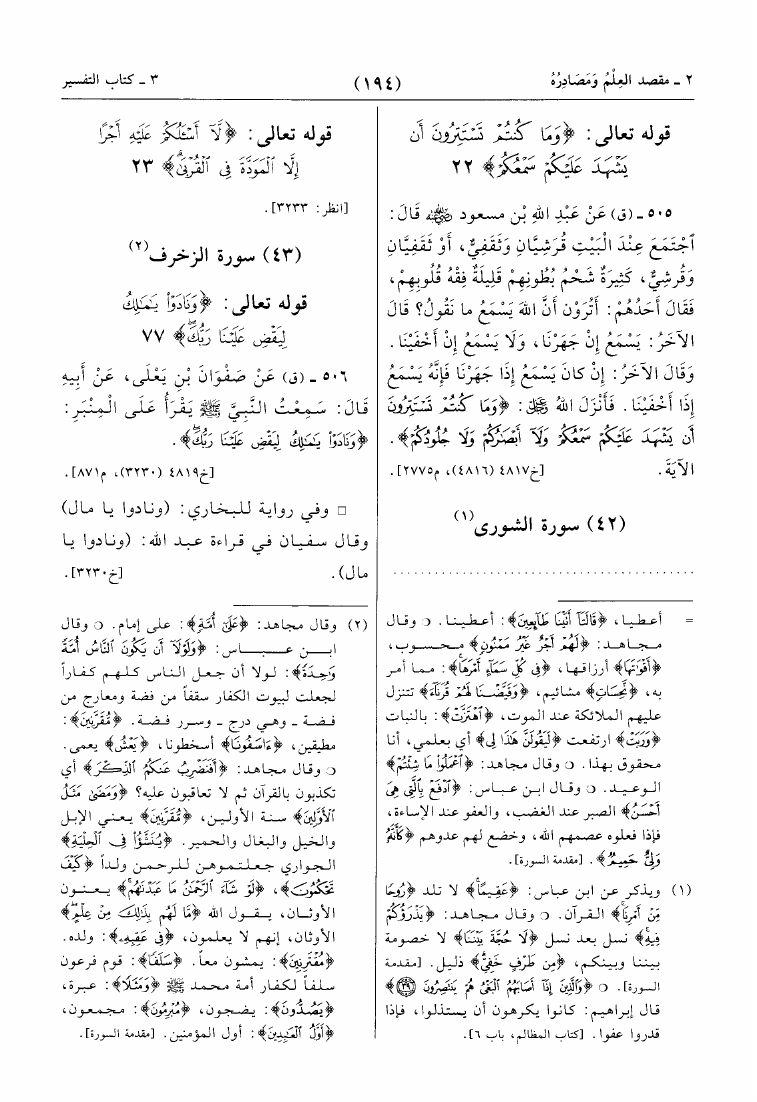 ٢ ـ مقصد العِلْمُ وَمَصَادِرُهُ
(١٩٤)
٣ ـ كتاب التفسير
قوله تعالى: ﴿وَمَا كُنتُمْ تَسْتَتِرُونَ أَن
يَشْهَدَ عَلَيْكُمْ سَمْعُكُمْ﴾ ٢٢
٥٠٥ ـ (ق) عَنْ عَبْدِ اللهِ بْنِ مسعود ﷺ قَالَ:
ٱجْتَمَعَ عِنْدَ الْبَيْتِ قُرَشِيَّانِ وَثَقَفِيٌّ، أَوْ ثَقَفِيَّانِ
وَقُرشِيٌّ، كَثِيرَةٌ شَحْمُ بُطُونِهِمْ قَلِيلَةٌ فِقْهُ قُلُوبِهِمْ،
فَقَالَ أَحَدُهُمْ: أَتُرَوْنَ أَنَّ اللهَ يَسْمَعُ ما نَقُولُ؟ قَالَ
الآخَرُ: يَسْمَعُ إِنْ جَهَرْنَا، وَلَا يَسْمَعُ إِنْ أَخْفَيْنَا.
وَقَالَ الآخَرُ: إِنْ كانَ يَسْمَعُ إِذَا جَهَرْنَا فَإِنَّهُ يَسْمَعُ
إِذَا أَخْفَيْنَا. فَأَنْزَلَ اللهُ ﷻ: ﴿وَمَا كُنتُمْ تَسْتَتِرُونَ
أَن يَشْهَدَ عَلَيْكُمْ سَمْعُكُمْ وَلَآ أَبْصَٰرُكُمْ وَلَا جُلُودُكُمْ﴾.
الآيَةَ. [خ٤٨١٧ (٤٨١٦)، م٢٧٧٥].
(٤٢) سورة الشورى(١)
........................................
= أعطيا، ﴿قَالَتَآ أَتَيْنَا طَآئِعِينَ﴾: أعطينا. ○ وقال
مجاهد: ﴿لَهُمْ أَجْرٌ غَيْرُ مَمْنُونٍ﴾ محسوب،
﴿أَقْوَٰتَهَا﴾ أرزاقها، ﴿فِي كُلِّ سَمَآءٍ أَمْرَهَا﴾: مما أمر
به، ﴿نَّحِسَاتٍ﴾ مشائيم، ﴿وَقَيَّضْنَا لَهُمْ قُرَنَآءَ﴾ تتنزل
عليهم الملائكة عند الموت، ﴿ٱهْتَزَّتْ﴾: بالنبات
﴿وَرَبَتْ﴾ ارتفعت ﴿لَيَقُولَنَّ هَٰذَا لِي﴾ أي بعلمي، أنا
محقوق بهذا. ○ وقال مجاهد: ﴿ٱعْمَلُوا۟ مَا شِئْتُمْ﴾
الوعيد. ○ وقال ابن عباس: ﴿ٱدْفَعْ بِٱلَّتِي هِيَ
أَحْسَنُ﴾ الصبر عند الغضب، والعفو عند الإساءة،
فإذا فعلوه عصمهم الله، وخضع لهم عدوهم ﴿كَأَنَّهُۥ
وَلِيٌّ حَمِيمٌ﴾. [مقدمة السورة].
(١) ويذكر عن ابن عباس: ﴿عَقِيمًا﴾ لا تلد ﴿رُوحًا
مِّنْ أَمْرِنَا﴾ القرآن. ○ وقال مجاهد: ﴿يَذْرَؤُكُمْ
فِيهِ﴾ نسل بعد نسل ﴿لَا حُجَّةَ بَيْنَنَا﴾ لا خصومة
بيننا وبينكم، ﴿مِن طَرْفٍ خَفِيٍّ﴾ ذليل. [مقدمة
السورة]. ○ ﴿وَٱلَّذِينَ إِذَآ أَصَابَهُمُ ٱلْبَغْيُ هُمْ يَنتَصِرُونَ ﴿٣٩﴾﴾
قال إبراهيم: كانوا يكرهون أن يستذلوا، فإذا
قدروا عفوا. [كتاب المظالم، باب ٦].
قوله تعالى: ﴿لَّآ أَسْـَٔلُكُمْ عَلَيْهِ أَجْرًا
إِلَّا ٱلْمَوَدَّةَ فِى ٱلْقُرْبَىٰ﴾ ٢٣
[انظر: ٣٢٣٣].
(٤٣) سورة الزخرف(٢)
قوله تعالى: ﴿وَنَادَوْا۟ يَٰمَٰلِكُ
لِيَقْضِ عَلَيْنَا رَبُّكَ﴾ ٧٧
٥٠٦ ـ (ق) عَنْ صَفْوَانَ بْنِ يَعْلَى، عَنْ أَبِيهِ
قَالَ: سَمِعْتُ النَّبِيَّ ﷺ يَقْرَأُ عَلَى الْمِنْبَرِ:
﴿وَنَادَوْا۟ يَٰمَٰلِكُ لِيَقْضِ عَلَيْنَا رَبُّكَ﴾.
[خ٤٨١٩ (٣٢٣٠)، م٨٧١].
□ وفي رواية للبخاري: (ونادوا يا مال)
وقال سفيان في قراءة عبد الله: (ونادوا يا
مال). [خ٣٢٣٠].
(٢) وقال مجاهد: ﴿عَلَىٰٓ أُمَّةٍ﴾: على إمام. ○ وقال
ابن عباس: ﴿وَلَوْلَآ أَن يَكُونَ ٱلنَّاسُ أُمَّةً
وَٰحِدَةً﴾: لولا أن جعل الناس كلهم كفاراً
لجعلت لبيوت الكفار سقفاً من فضة ومعارج من
فضة ـ وهي درج ـ وسرر فضة. ﴿مُقْرِنِينَ﴾:
مطيقين، ﴿ءَاسَفُونَا﴾ أسخطونا، ﴿يَعْشُ﴾ يعمى.
○ وقال مجاهد: ﴿أَفَنَضْرِبُ عَنكُمُ ٱلذِّكْرَ﴾ أي
تكذبون بالقرآن ثم لا تعاقبون عليه؟ ﴿وَمَضَىٰ مَثَلُ
ٱلْأَوَّلِينَ﴾ سنة الأولين، ﴿مُقْرِنِينَ﴾ يعني الإبل
والخيل والبغال والحمير. ﴿يُنَشَّؤُا۟ فِى ٱلْحِلْيَةِ﴾
الجواري جعلتموهن للرحمن ولداً ﴿كَيْفَ
تَحْكُمُونَ﴾، ﴿لَوْ شَآءَ ٱلرَّحْمَٰنُ مَا عَبَدْنَٰهُم﴾ يعنون
الأوثان، يقول الله ﴿مَّا لَهُم بِذَٰلِكَ مِنْ عِلْمٍ﴾
الأوثان، إنهم لا يعلمون، ﴿فِى عَقِبِهِۦ﴾: ولده.
﴿مُقْتَرِنِينَ﴾: يمشون معاً. ﴿سَلَفًا﴾: قوم فرعون
سلفاً لكفار أمة محمد ﷺ ﴿وَمَثَلًا﴾: عبرة،
﴿يَصِدُّونَ﴾: يضجون، ﴿مُبْرِمُونَ﴾: مجمعون،
﴿أَوَّلُ ٱلْعَٰبِدِينَ﴾: أول المؤمنين. [مقدمة السورة].